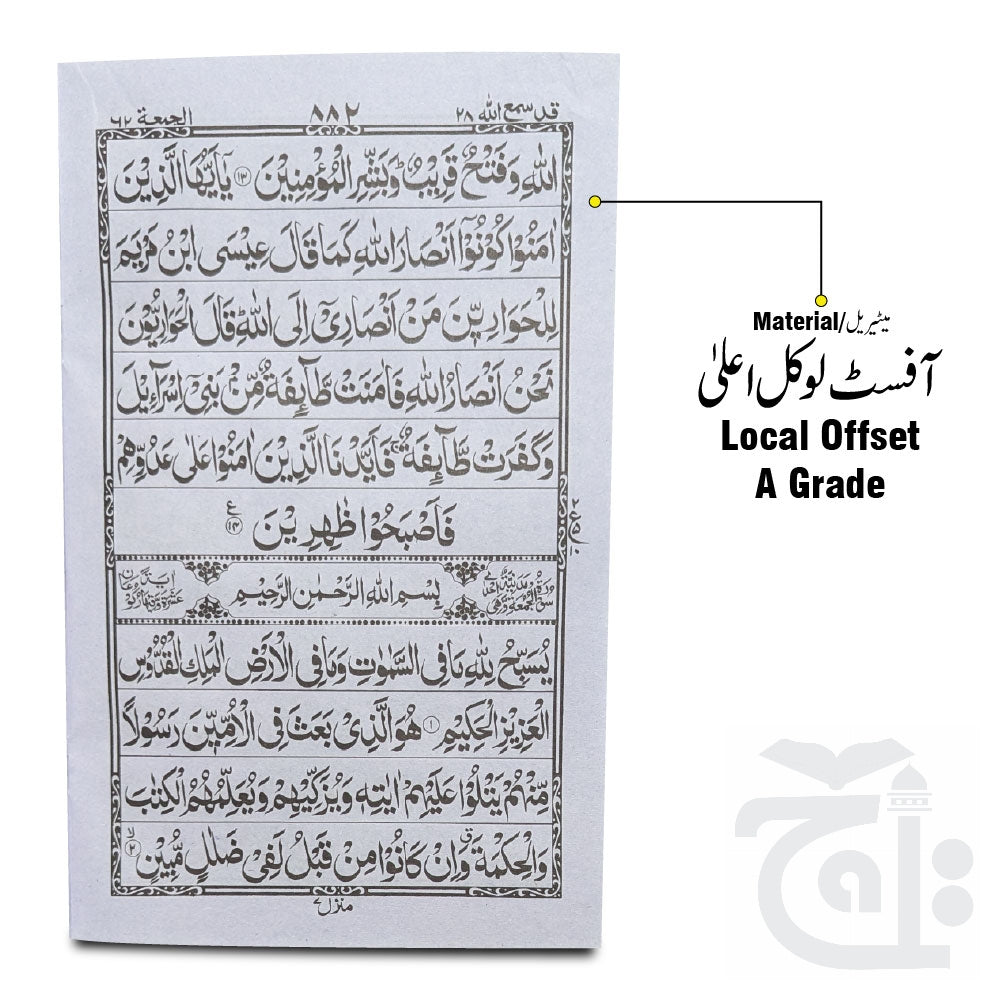 قد سمع الله ۲۸
۸۸۲
الجمعة ۶۲
اللهِ وَفَتْحٌ قَرِيْبٌ ؕ وَبَشِّرِ الْمُؤْمِنِيْنَ ﴿۱۳﴾ يٰۤاَيُّهَا الَّذِيْنَ
اٰمَنُوْا كُوْنُوْۤا اَنْصَارَ اللهِ كَمَا قَالَ عِيْسَى ابْنُ مَرْيَمَ
لِلْحَوَارِيّٖنَ مَنْ اَنْصَارِيْۤ اِلَى اللهِ ؕ قَالَ الْحَوَارِيُّوْنَ
نَحْنُ اَنْصَارُ اللهِ فَاٰمَنَتْ طَّآئِفَةٌ مِّنْۢ بَنِيْۤ اِسْرَآءِيْلَ
وَكَفَرَتْ طَّآئِفَةٌ ۚ فَاَيَّدْنَا الَّذِيْنَ اٰمَنُوْا عَلٰى عَدُوِّهِمْ
فَاَصْبَحُوْا ظٰهِرِيْنَ ﴿۱۴﴾ ع
بِسْمِ اللهِ الرَّحْمٰنِ الرَّحِيْمِ
يُسَبِّحُ لِلّٰهِ مَا فِى السَّمٰوٰتِ وَمَا فِى الْاَرْضِ الْمَلِكِ الْقُدُّوْسِ
الْعَزِيْزِ الْحَكِيْمِ ﴿۱﴾ هُوَ الَّذِيْ بَعَثَ فِى الْاُمِّيّٖنَ رَسُوْلًا
مِّنْهُمْ يَتْلُوْا عَلَيْهِمْ اٰيٰتِهٖ وَيُزَكِّيْهِمْ وَيُعَلِّمُهُمُ الْكِتٰبَ
وَالْحِكْمَةَ ۗ وَاِنْ كَانُوْا مِنْ قَبْلُ لَفِيْ ضَلٰلٍ مُّبِيْنٍ ﴿۲﴾ ۙ
منزل ۷
Material/میٹیریل
آفسٹ لوکل اعلیٰ
Local Offset
A Grade